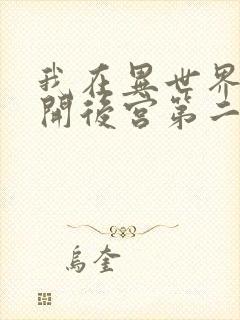 我在異世界
開後宮第二
烏奎